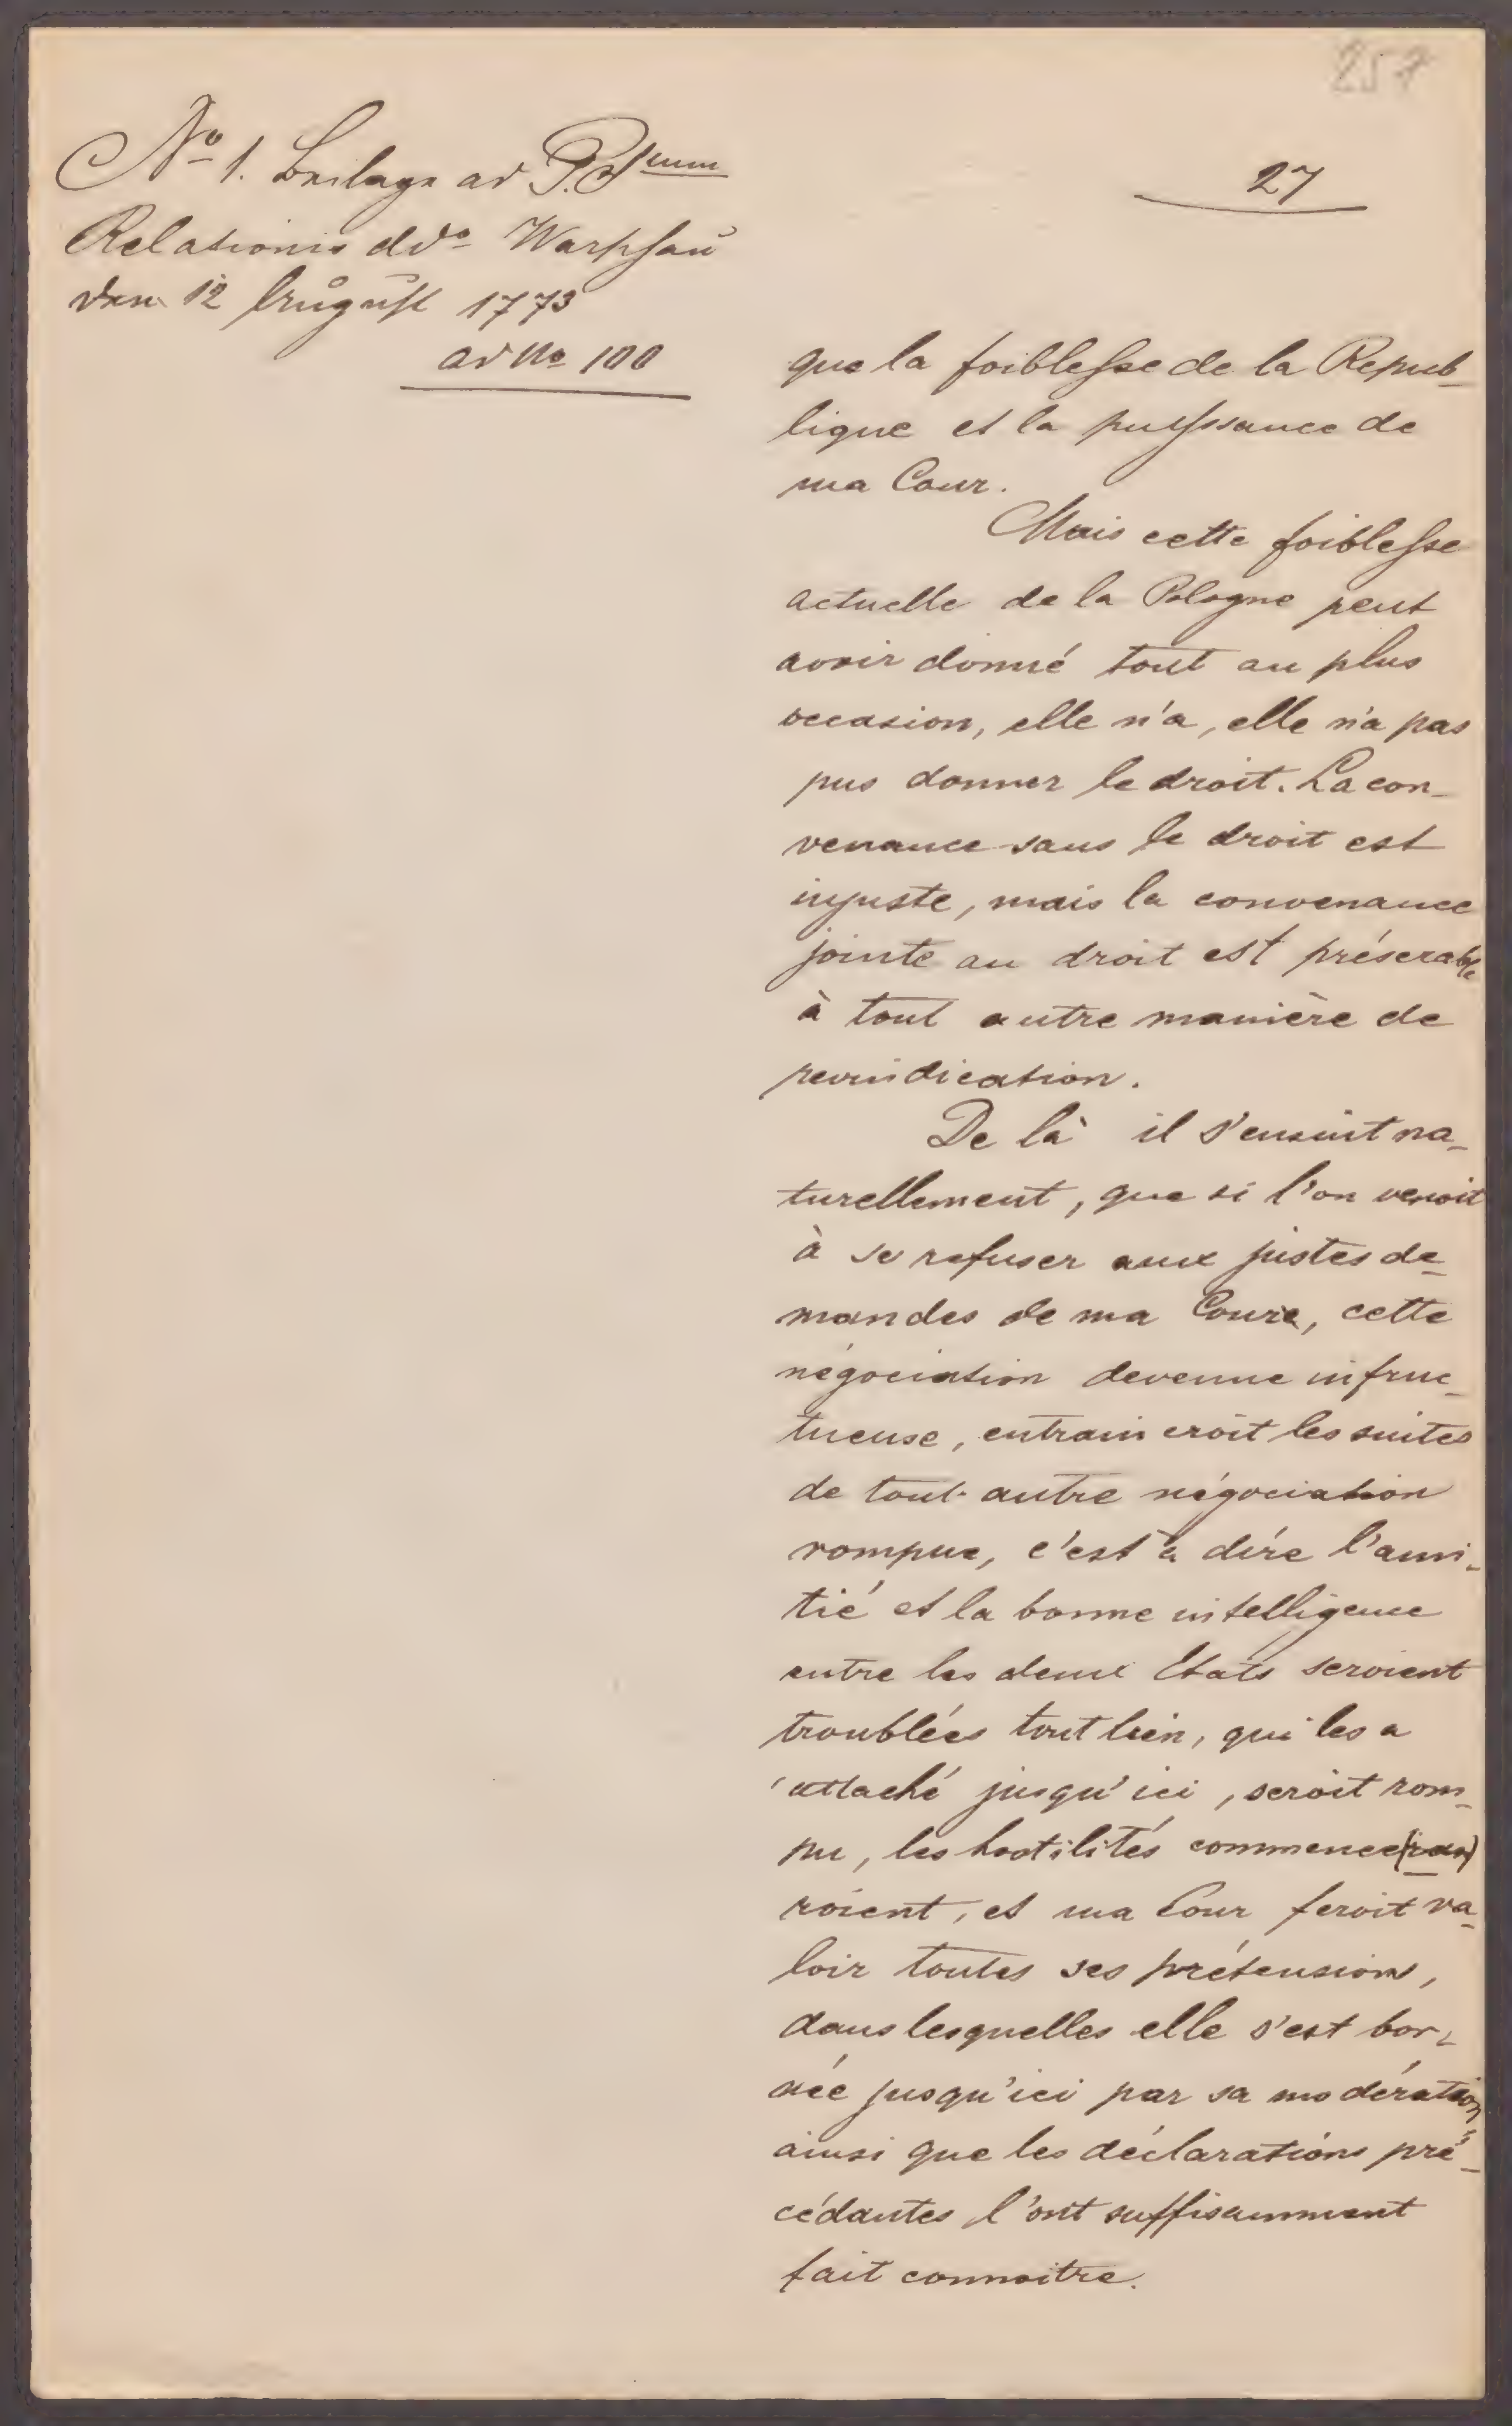 257
27
No 1. Beilage ad P.S.um
Relationis ddo Warschau
den 12 August 1773
ad No 100
que la foiblesse de la Repub-
lique et la puissance de
ma Cour.
Mais cette foiblesse
actuelle de la Pologne peut
avoir donné tout au plus
occasion, elle n'a, elle n'a pas
pus donner le droit. La con-
venance sans le droit est
injuste, mais la convenance
jointe au droit est préserable
à tout autre manière de
revindication.
De là il s'ensuit na-
turellement, que si l'on venoit
à se refuser aux justes de-
mandes de ma Coure, cette
négociation devenue infruc-
tueuse, entraineroit les suites
de tout autre négociation
rompue, c'est à dire l'ami-
tié et la bonne intelligence
entre les deux Etats seroient
troublées tout lien, qui les a
attaché jusqu'ici, seroit rom-
pu, les hostilités commence
roient, et ma Cour feroit va-
loir toutes ses prétensions,
dans lesquelles elle s'est bor-
née jusqu'ici par sa modération,
ainsi que les déclarations pré-
cédantes l'ont suffisamment
fait connoitre.